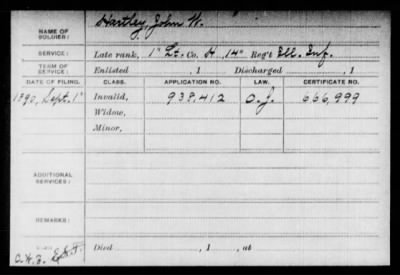 Hartley, John W.
NAME OF SOLDIER:
SERVICE: Late rank, 1" Lt., Co. H, 14" Reg't Ill. Inf.
TERM OF SERVICE: Enlisted , 1 Discharged , 1
DATE OF FILING. CLASS. APPLICATION NO. LAW. CERTIFICATE NO.
1890, Sept. 1" Invalid, 938,412 O.J. 666,999
Widow,
Minor,
ADDITIONAL SERVICES:
REMARKS:
Died , 1 , at